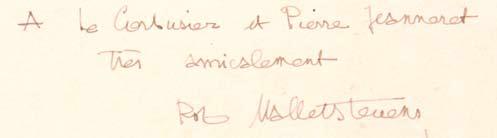 A Le Corbusier et Pierre Jeanneret
très amicalement
Rob Mallet Stevens